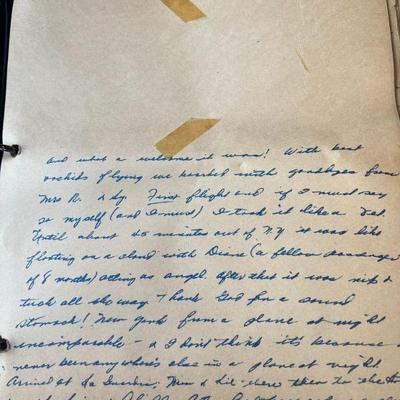 and what a welcome it was! With best
orchids flying we boarded with goodbyes from
Mrs R. & Ly. First flight and if I must say
so myself (and I must) I took it like a vet.
Until about 45 minutes out of N.Y it was like
floating on a cloud with Diane (a fellow passenger
of 8 months) acting as angel. After that it was nip &
tuck all the way - thank God for a sound
stomach! New York from a plane at night
incomparable - & I don't think it's because
never been anywhere else in a plane at night.
Arrived at La Guardia; Mom & Lil were there to